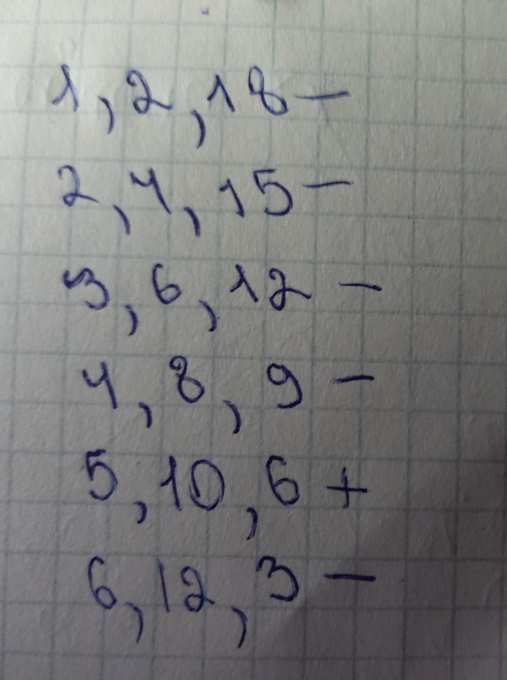 1, 2, 18 -
2, 4, 15 -
3, 6, 12 -
4, 8, 9 -
5, 10, 6 +
6, 12, 3 -